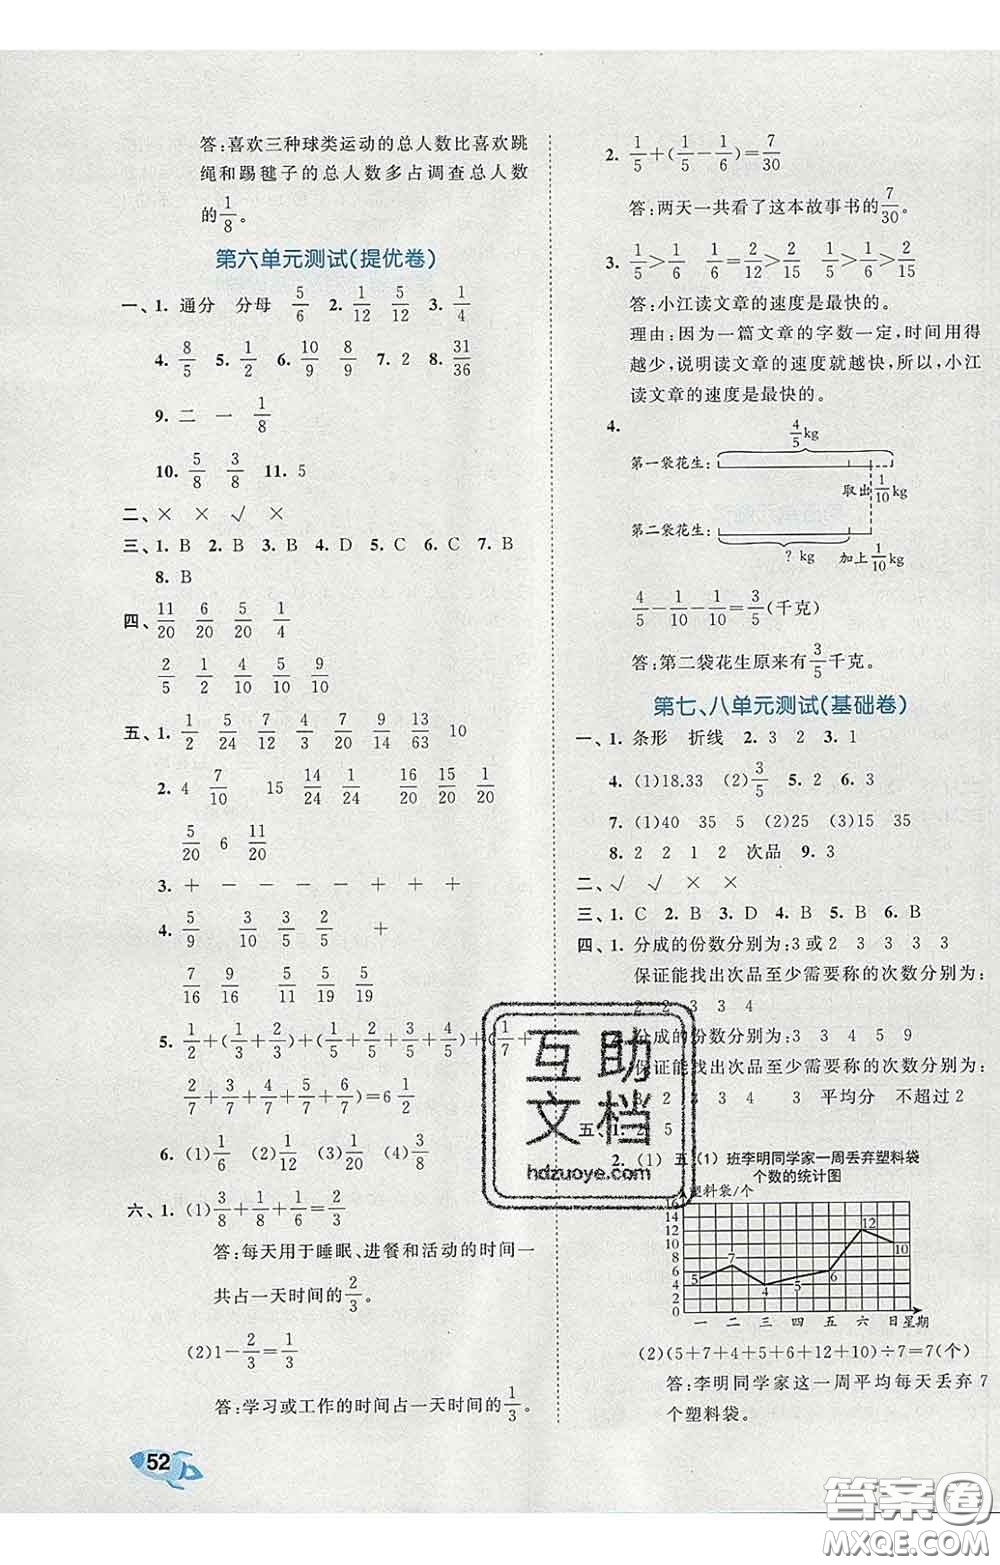 答:喜欢三种球类运动的总人数比喜欢跳
绳和踢毽子的总人数多占调查总人数
的1/8。
第六单元测试(提优卷)
一、1. 通分 分母 5/6 2. 1/12 5/12 3. 1/4
4. 8/5 5. 1/2 6. 10/9 8/9 7. 2 8. 31/36
9. 二 一 1/8
10. 5/8 3/8 11. 5
二、× × √ ×
三、1. B 2. B 3. B 4. D 5. C 6. C 7. B
8. B
四、11/20 6/20 5/20 1/4
2/5 1/2 9/20 5/10 9/10
五、1. 1/2 5/24 7/12 4/3 7/24 9/20 13/63 10
2. 4 7/10 15 14/24 1/24 15/20 11/20
5/20 6 11/20
3. + - - - - + + +
4. 5/9 3/10 3/5 2/5 +
7/16 9/16 1/5 9/10 -
5. 1/2+(1/3+2/3)+(1/5+2/5+3/5+4/5)+(1/7+
2/7+3/7+4/7+5/7+6/7)=6 1/2
6. (1)1/6 (2)1/12 (3)1/20 (4)1/2
六、1. (1)3/8+1/8+1/6=2/3
答:每天用于睡眠、进餐和活动的时间一
共占一天时间的2/3。
(2)1-2/3=1/3
答:学习或工作的时间占一天时间的1/3。
52
2. 1/5+(1/5-1/6)=7/30
答:两天一共看了这本故事书的7/30。
3. 1/5>1/6 1/6=2/12>2/15 1/5>1/6>2/15
答:小江读文章的速度是最快的。
理由:因为一篇文章的字数一定,时间用得
越少,说明读文章的速度就越快,所以,小江
读文章的速度是最快的。
4.
4/5kg
第一袋花生:
取出1/10kg
第二袋花生:
? kg 加上1/10kg
4/5-1/10-1/10=3/5(千克)
答:第二袋花生原来有3/5千克。
第七、八单元测试(基础卷)
一、1. 条形 折线 2. 3 2 3. 1
4. (1)18.33 (2)3/5 5. 2 6. 3
7. (1)40 35 5 (2)25 (3)15 35
8. 2 2 1 2 次品 9. 3
二、√ √ × ×
三、1. C 2. B 3. D 4. B 5. B 6. B
四、1. 分成的份数分别为:3或2 3 3 3 3
保证能找出次品至少需要称的次数分别为:
2 2 3 3 4
分成的份数分别为:3 3 4 5 9
保证能找出次品至少需要称的次数分别为:
2 3 3 4 3 平均分 不超过2
五、1. 2 5
2. (1) 五(1)班李明同学家一周丢弃塑料袋
个数的统计图
塑料袋/个
16
14
12
10
8
6
4
2
0
5 7 4 5 6 12 10
一 二 三 四 五 六 日 星期
(2)(5+7+4+5+6+12+10)÷7=7(个)
答:李明同学家这一周平均每天丢弃7
个塑料袋。
互助
文档
hdzuoye.com
答案圈
MXQE.COM